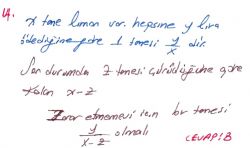 4.
x tane limon var. hepsine y lira
ödediğine göre 1 tanesi y/x dir.
Son durumda z tanesi çürüdüğüne göre
kalan x-z
Zarar etmemesi için bir tanesi
y/x-z olmalı
CEVAP: B